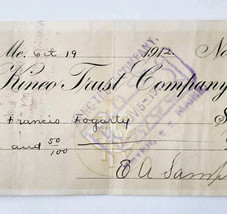 Me. Oct 19 1912 No
Kineo Trust Company
Francis Fogarty $
and 50/100
E A Samp